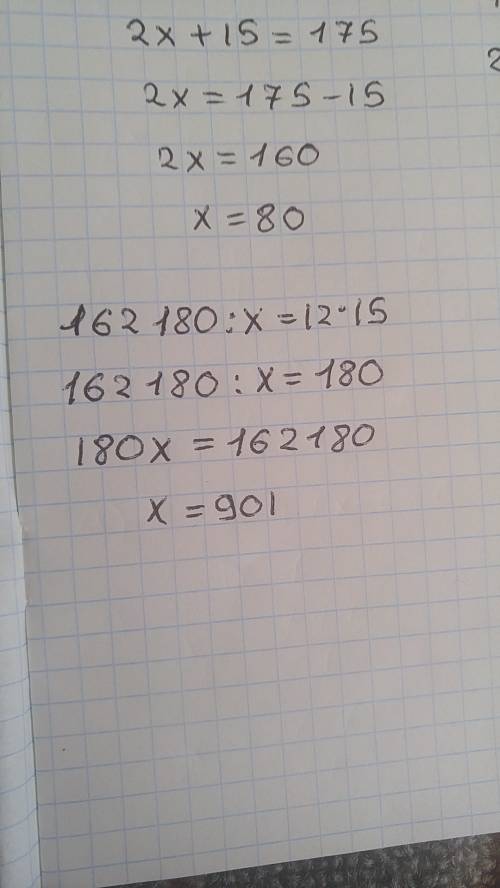 2x + 15 = 175
2x = 175 - 15
2x = 160
x = 80
162 180 : x = 12 · 15
162 180 : x = 180
180x = 162180
x = 901